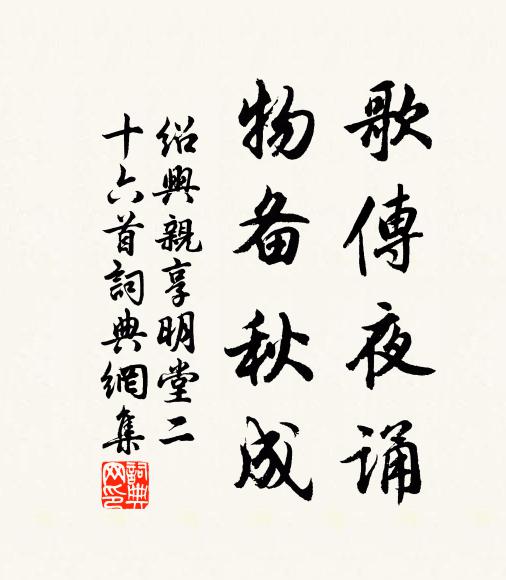 歌傳夜诵
物备秋成
绍興親享明堂二
十六首詞典網集
詞典网印